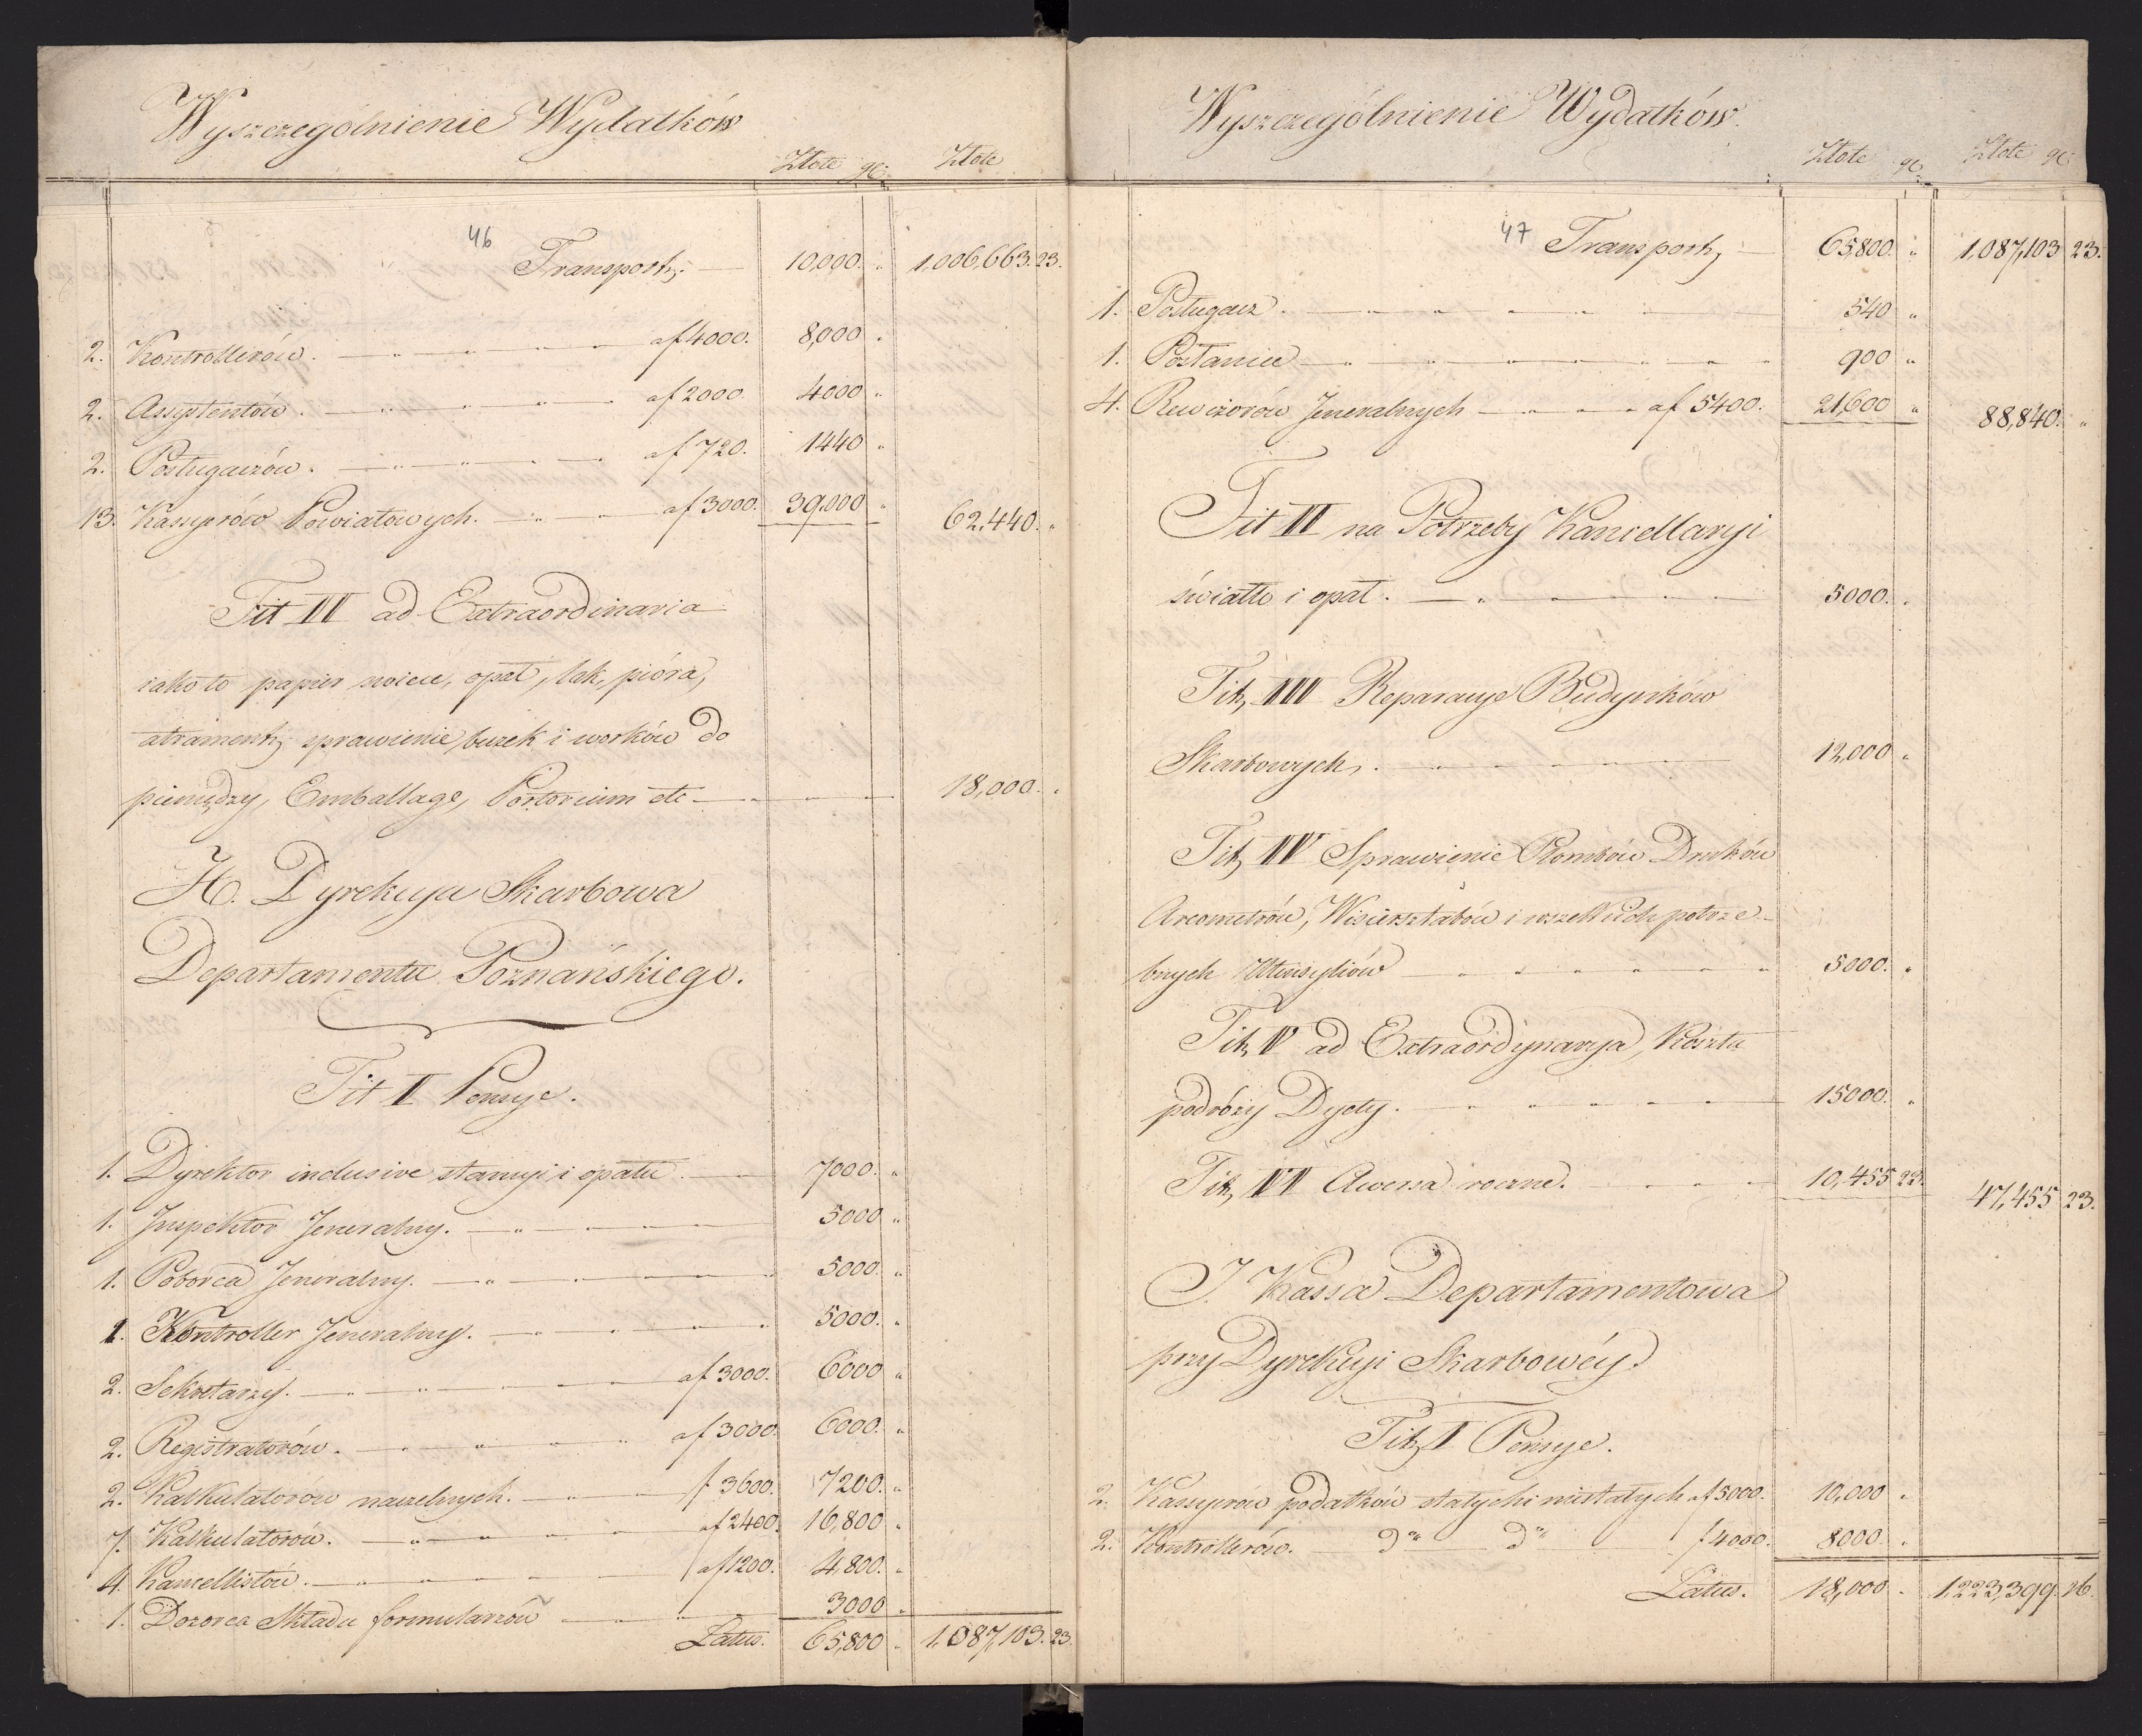 Wyszczególnienie Wydatków
Złote gr. Złote
46 Transport, 10,000. „ 1,006,663. 23.
2. Kontrollerów. af 4000. 8,000 „
2. Assystentów. af 2000. 4000 „
2. Posługaczów. af 720. 1440 „
13. Kassyerów Powiatowych. af 3000. 39,000 „ 62,440. „
Tit II ad Extraordinaria
iako to papier świece, opał, lak, pióra,
atrament, sprawienie beczek i worków do
pieniędzy, Emballage, Portorium etc 18,000. „
H. Dyrekcya Skarbowa
Departamentu Poznańskiego.
Tit I Pensye.
1. Dyrektor inclusive stancyi i opału. 7000. „
1. Inspektor Jeneralny. 5000 „
1. Poborca Jeneralny. 5000. „
1. Kontroller Jeneralny. 5000. „
2. Sekretarzy. af 3000. 6000 „
2. Registratorów. af 3000. 6000. „
2. Kalkulatorów naczelnych. f 3600. 7200. „
7. Kalkulatorów. af 2400. 16,800 „
4. Kancellistów. af 1200. 4,800. „
1. Dozorca Składu formularzów 3000 „
Latus. 65,800 „ 1,087,103. 23.
Wyszczególnienie Wydatków.
Złote gr. Złote gr.
47 Transport, 65,800. „ 1,087,103 23.
1. Posługacz. 540 „
1. Posłaniec 900 „
4. Rewizorów Jeneralnych af 5400. 21,600 „ 88,840. „
Tit II na Potrzeby Kancellaryi
światło i opał. 5000. „
Tit, III Reparacye Budynków
Skarbowych. 12,000 „
Tit, IV Sprawienie Plombów Druków
Areometrów, Wisiersztabów i wszelkich potrze-
bnych Utensyliów 5000. „
Tit, V ad Extraordynarya, Koszta
podróży Dyety. 15000. „
Tit, VI Aversa roczne. 10,455 23. 47,455 23.
I. Kassa Departamentowa
przy Dyrekcyi Skarbowéy.
Tit, I Pensye.
2. Kassyerów podatków stałych i niestałych af 5000. 10,000 „
2. Kontrollerów. do do f 4000. 8000. „
Latus. 18,000 „ 1,223,399. 16.